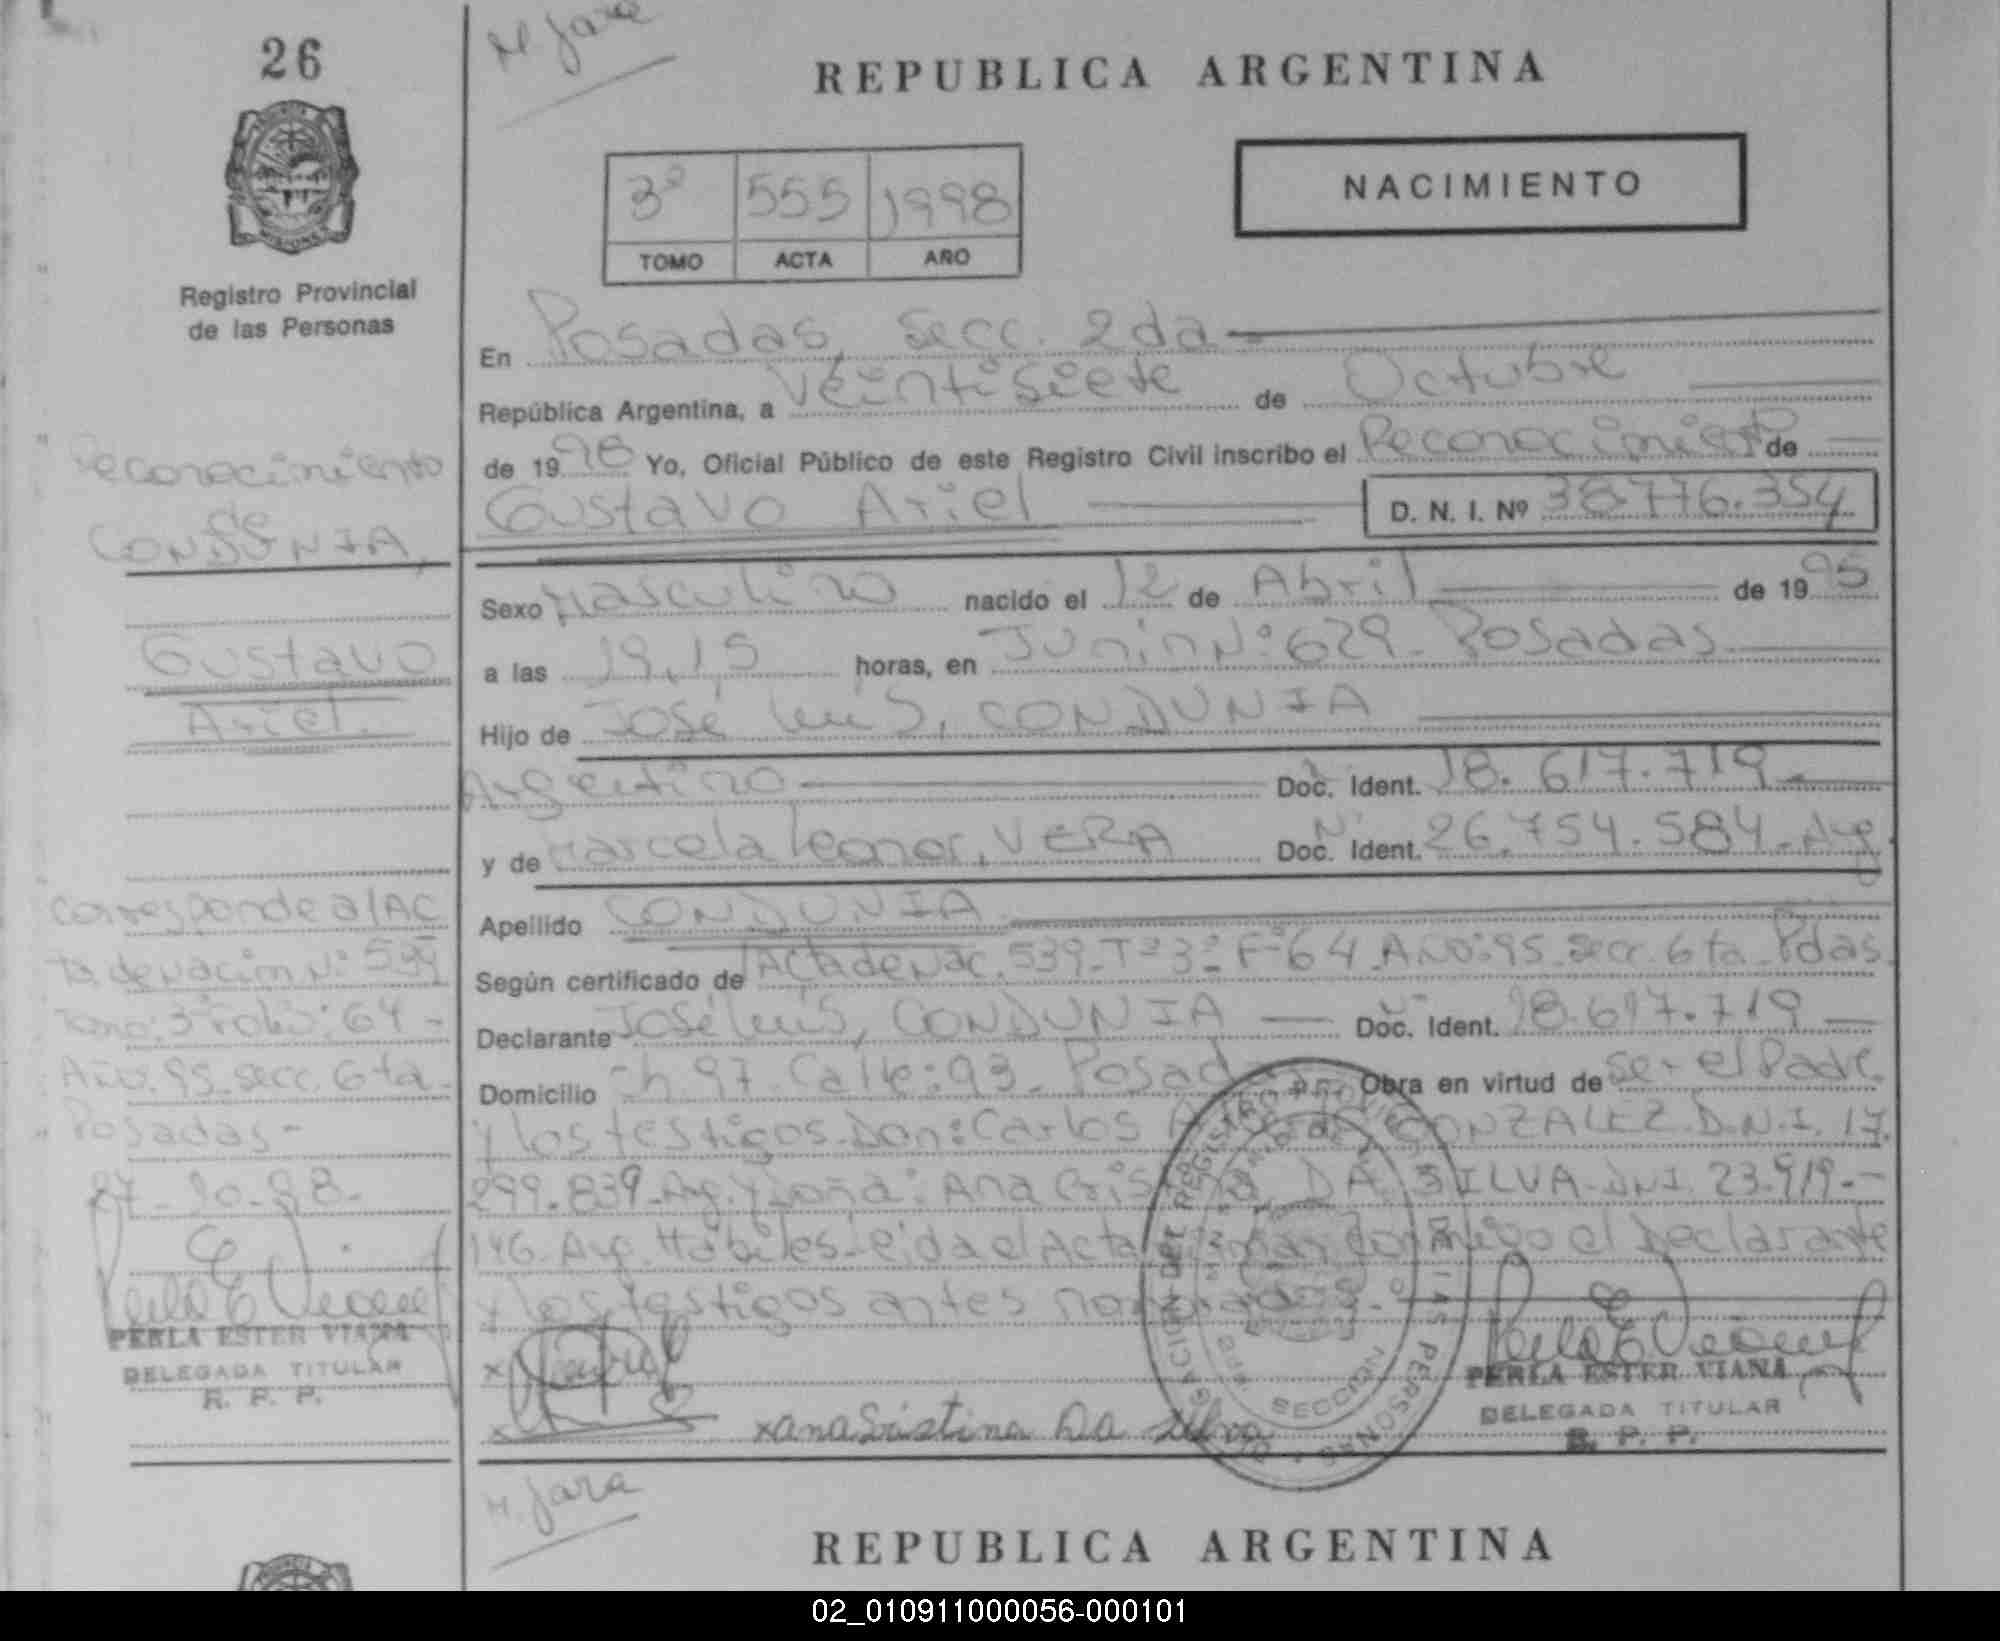 26
M Jara
REPUBLICA ARGENTINA
3º 555 1998
TOMO ACTA AÑO
NACIMIENTO
Registro Provincial
de las Personas
En Posadas, Secc. 2da
República Argentina, a Veintisiete de Octubre
de 1998 Yo, Oficial Público de este Registro Civil inscribo el Reconocimiento de
Gustavo Ariel D. N. I. Nº 38.776.354
Sexo Masculino nacido el 12 de Abril de 1995
a las 19,15 horas, en Junin Nº: 629 - Posadas
Hijo de José Luis, CONDUNIA
Argentino Doc. Ident. 18.617.719
y de Marcela Leonor, VERA Doc. Ident. Nº 26.754.584 - Arg
Apellido CONDUNIA
Según certificado de Acta de Nac. 539 - Tº 3º - Fº 64 - Año: 95 - Secc. 6ta - Pdas
Declarante José Luis, CONDUNIA Doc. Ident. 18.617.719
Domicilio Ch 97 - Calle: 93 - Posadas Obra en virtud de ser el Padre
y los testigos - Don: Carlos GONZALEZ D.N.I. 17.
299.839 - Arg. y Doña: Ana Cristina DA SILVA - DNI. 23.919.-
146 - Arg. Hábiles - leida el Acta firman conmigo el Declarante
y los testigos antes nombrados.-
x
x x ana Cristina Da Silva
PERLA ESTER VIANA
DELEGADA TITULAR
R. P. P.
Reconocimiento
de
CONDUNIA,
Gustavo
Ariel.
Corresponde al Ac
ta de nacim Nº 539
Tomo: 3º Folio: 64 -
Año. 95 - secc. 6ta -
Posadas -
27 - 10 - 98 -
PERLA ESTER VIANA
DELEGADA TITULAR
R. P. P.
SECCION
M. Jara
REPUBLICA ARGENTINA
02_010911000056-000101